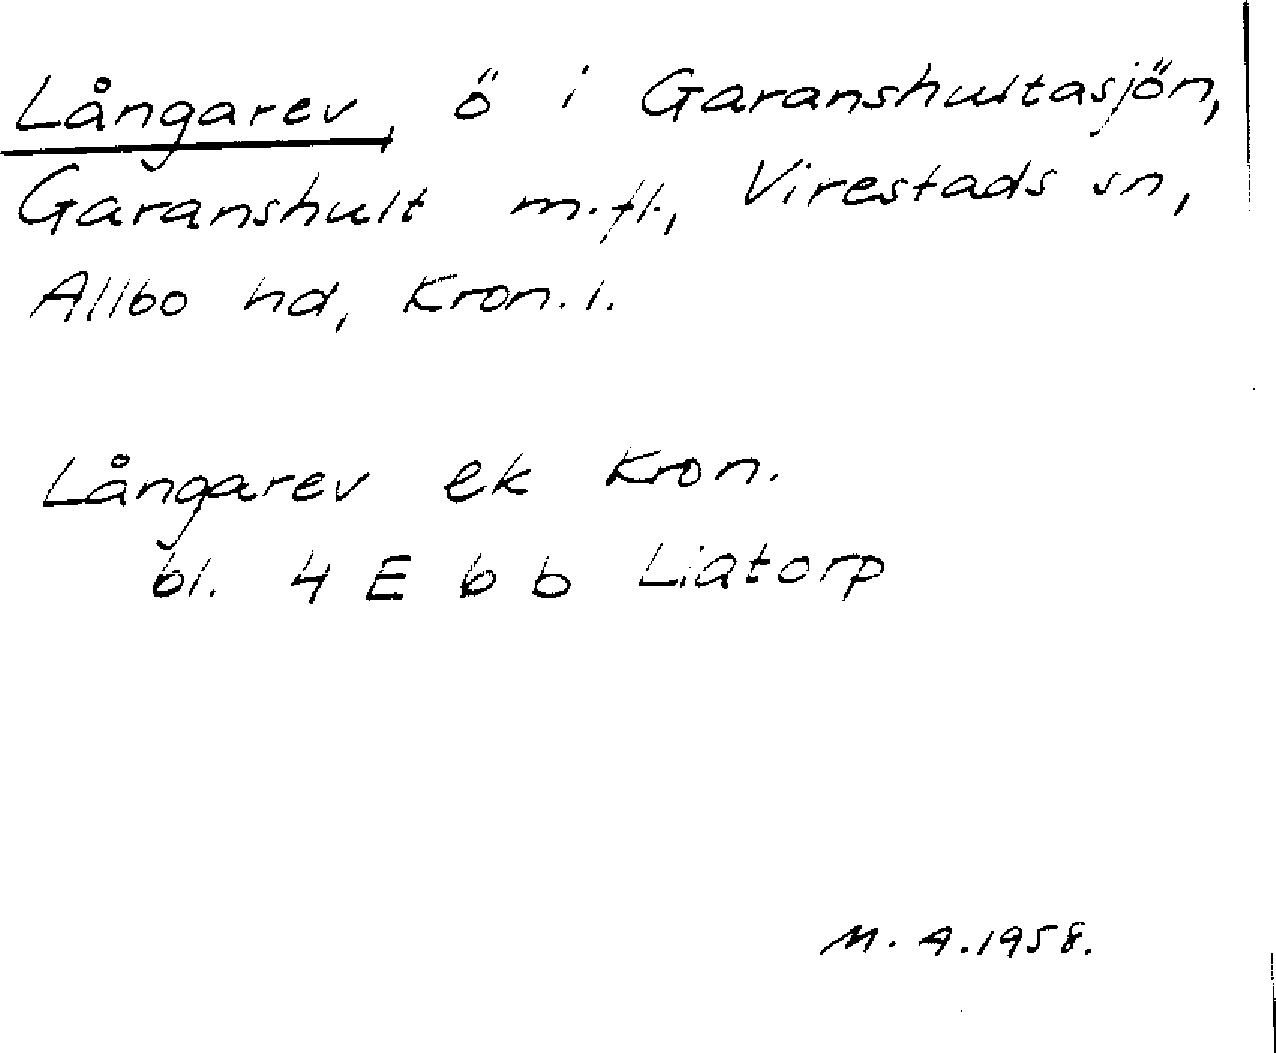 Långarev, ö i Garanshultasjön,
Garanshult m.fl., Virestads sn,
Allbo hd, Kron. l.
Långarev ek Kron.
bl. 4 E b b Liatorp
M. A. 1958.